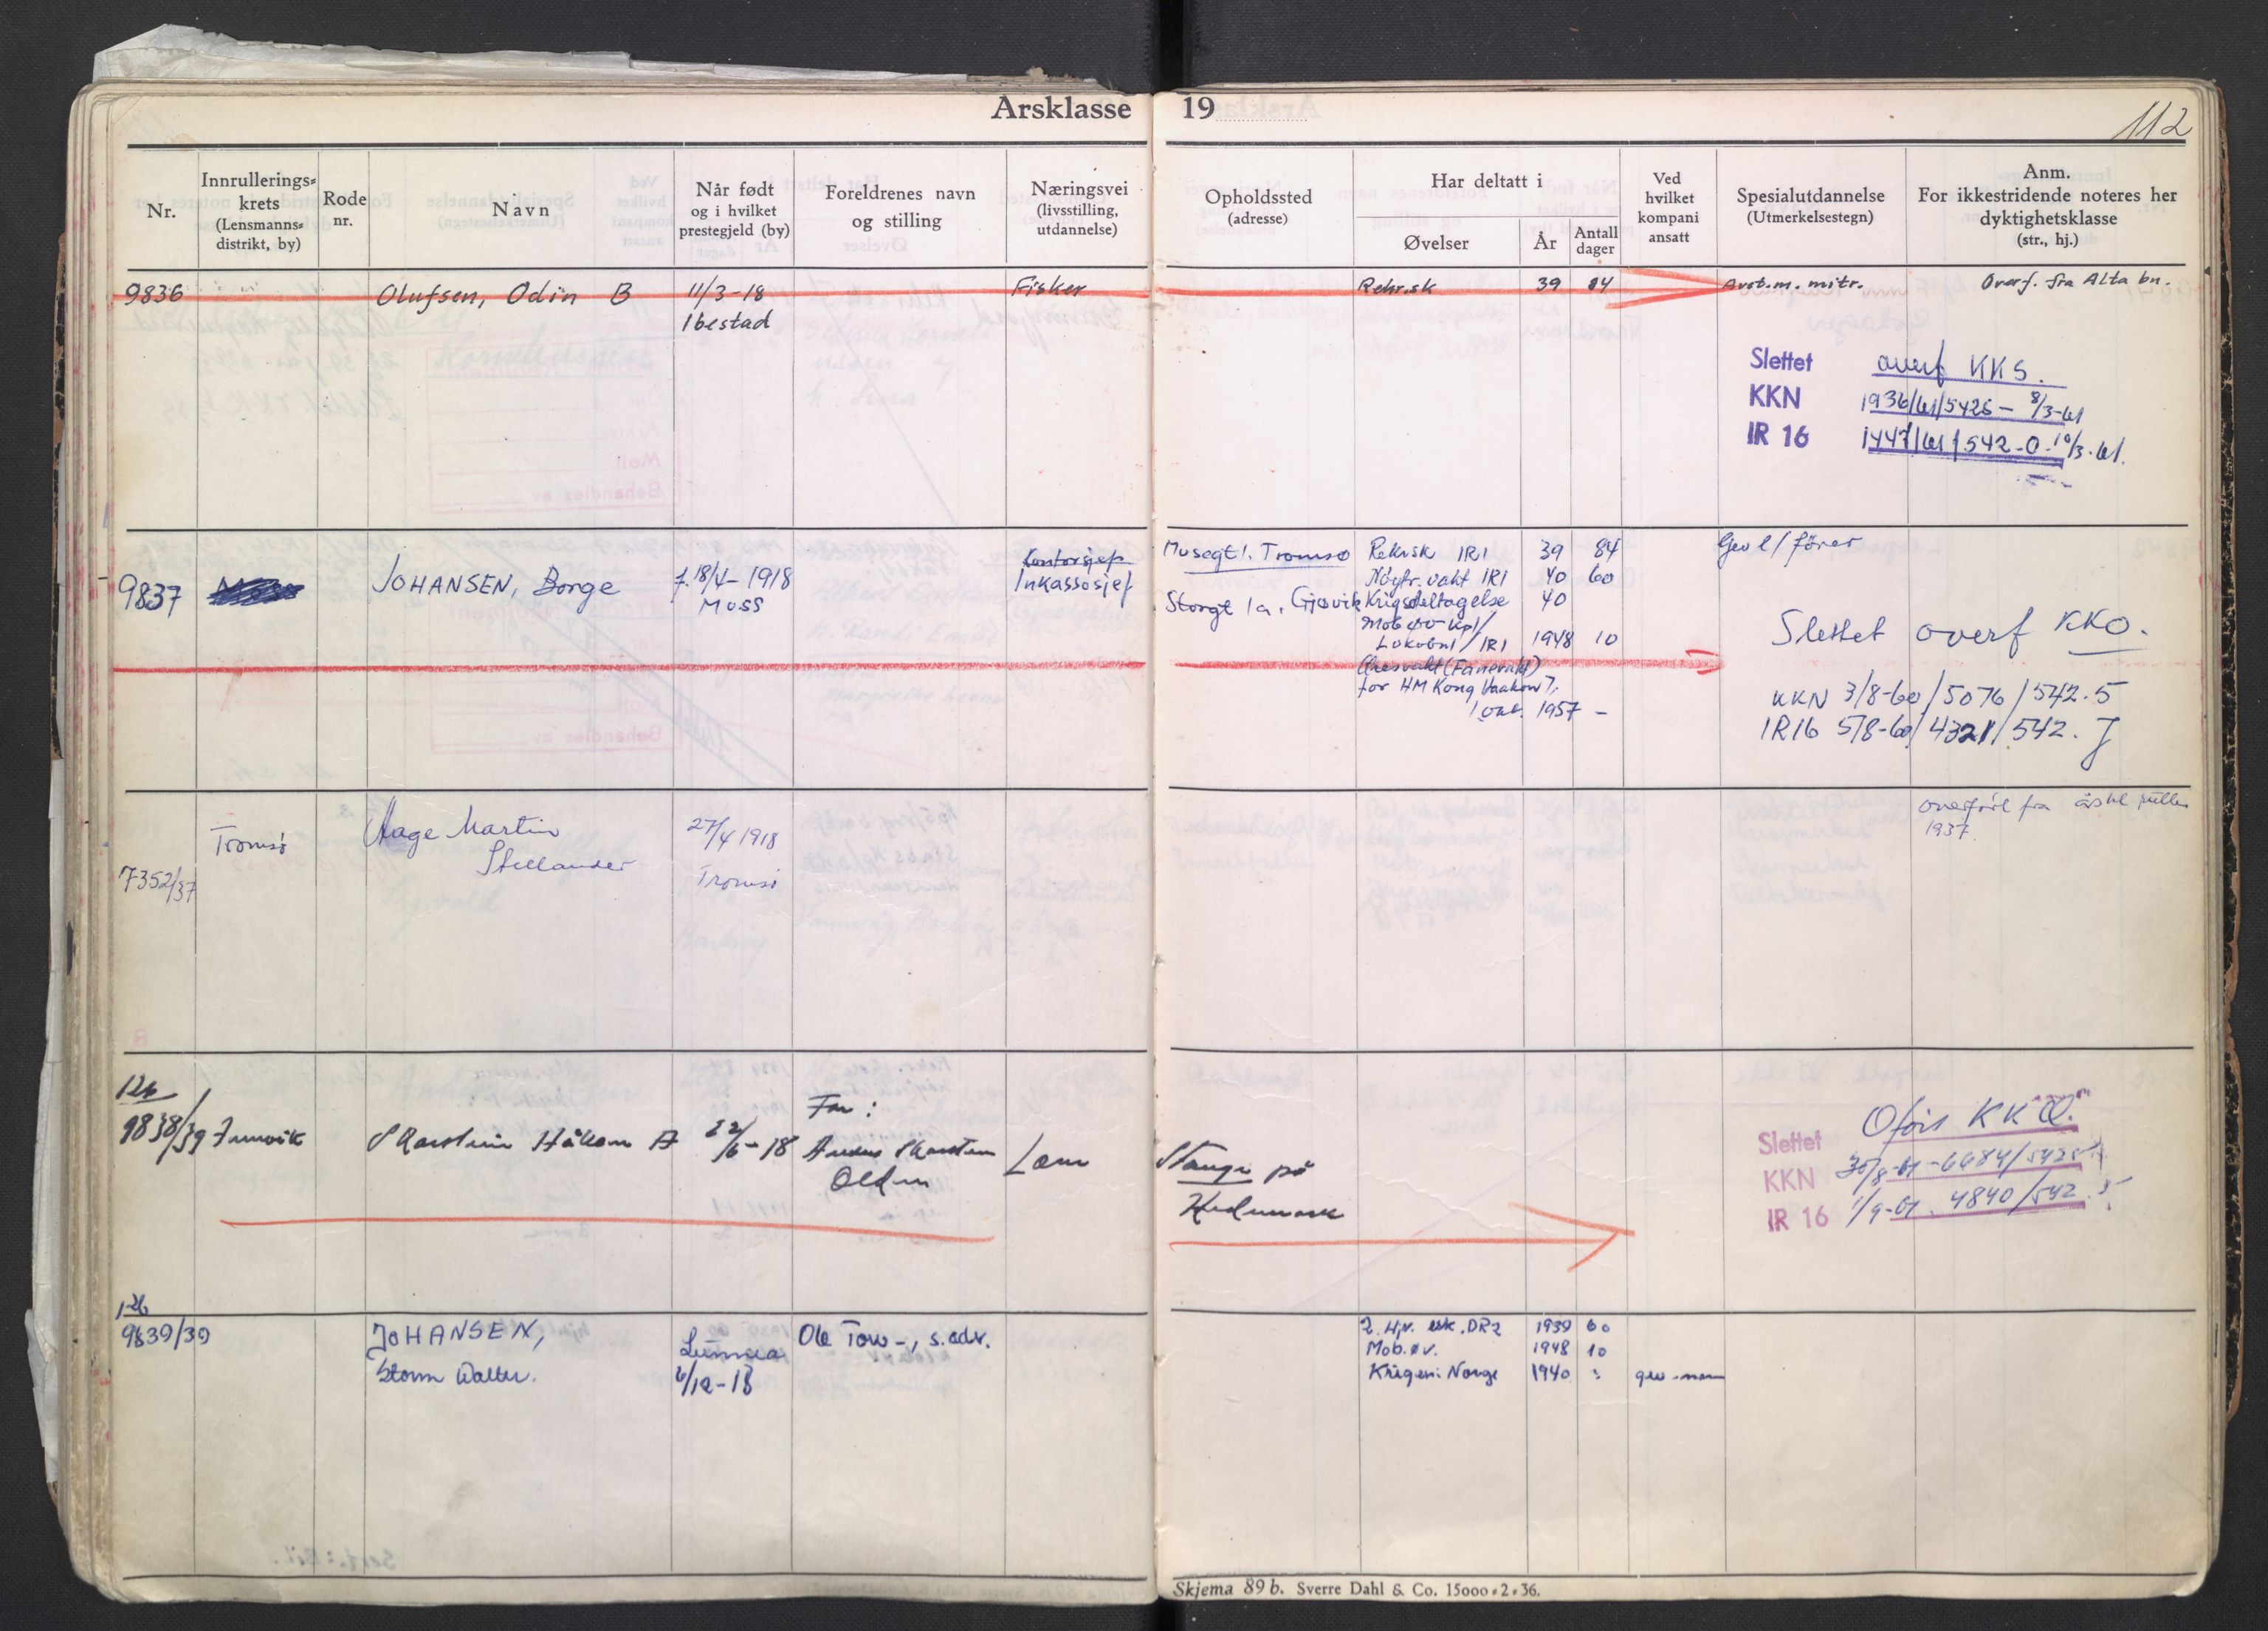 Årsklasse 19
112
Nr.
Innrullerings-
krets
(Lensmanns-
distrikt, by)
Rode
nr.
Navn
Når født
og i hvilket
prestegjeld (by)
Foreldrenes navn
og stilling
Næringsvei
(livsstilling,
utdannelse)
Opholdssted
(adresse)
Har deltatt i
Øvelser
År
Antall
dager
Ved
hvilket
kompani
ansatt
Spesialutdannelse
(Utmerkelsestegn)
Anm.
For ikkestridende noteres her
dyktighetsklasse
(str., hj.)
9836 Olufsen, Odin B 11/3-18 Fisker Rekr.sk 39 84 Avst.m. mitr. Overf. fra Alta bn.
Ibestad
Slettet overf KKS.
KKN 1936/61/5425 - 8/3-61
IR 16 1447/61/542-0. 10/3-61.
9837 JOHANSEN, Borge f. 18/4-1918 Kontorsjef
Moss Inkassosjef
Musegt 1. Tromsø Rekrsk IR1 39 84 Gevl/fører
Nøytr.vakt IR1 40 60
Storgt 1a, Gjøvik Krigsdeltagelse 40
Lokvbn1/IR1 1948 10
Æresvakt (Fanevakt)
for HM Kong Haakon 7.
1 okt. 1957 -
Slettet overf KKO.
KKN 3/8-60/5076/542.5
IR16 5/8-60/4321/542. J
7352/37 Tromsø Aage Martin 27/4 1918
Stellander Tromsø
overført fra årskl
1937.
126
9838/39 Skarstein Håkon A 22/6-18 Far:
Anders Skarstein
Olden
Stange på
Hedemark
Slettet KKO.
KKN 30/8-61-6684/5425
IR 16 1/9-61. 4840/542.5
126
9839/39 JOHANSEN, Ole Tow-, s.adv.
Storm Walter. 6/12-18
2. Hjv. esk. DR2 1939 60
Mob.øv. 1948 10
Krigen i Norge 1940 : gev.man
Skjema 89 b. Sverre Dahl & Co. 15000-2-36.